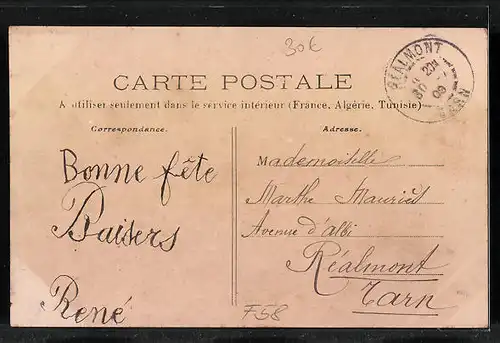 30€
RÉALMONT
TARN
CARTE POSTALE
A utiliser seulement dans le service intérieur (France, Algérie, Tunisie)
Correspondance.
Adresse.
Bonne fête
Baisers
René
Mademoiselle
Marthe Mauriès
Avenue d'albi
Réalmont
Tarn
F58